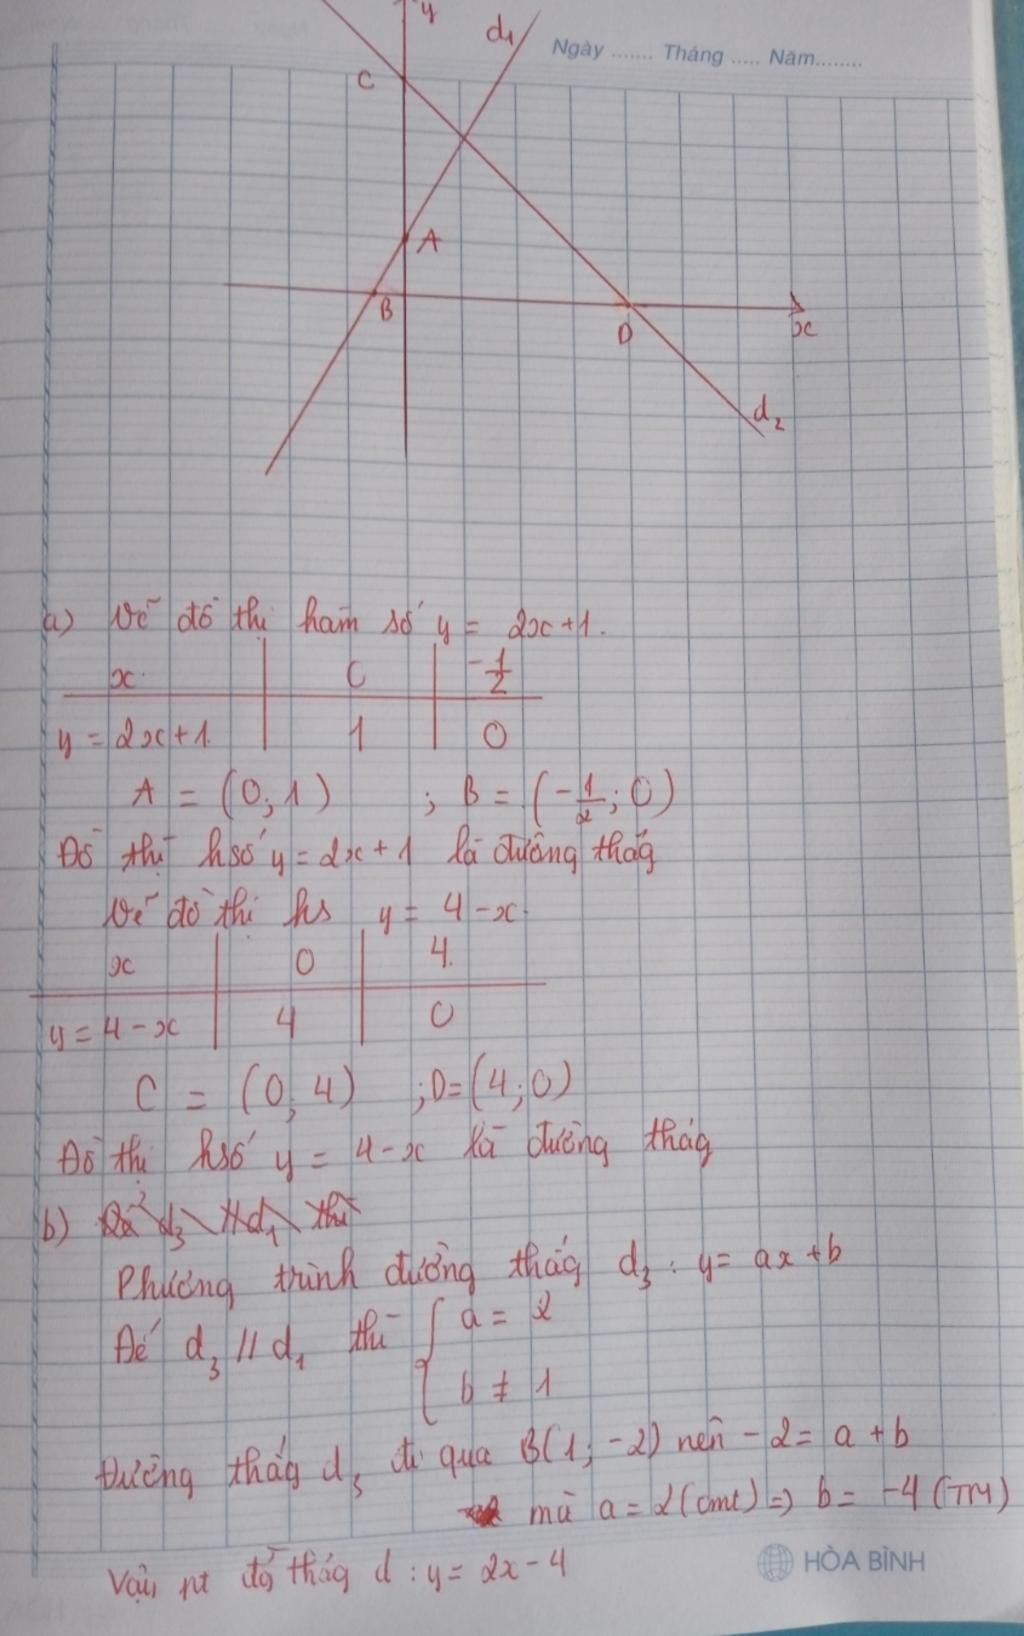 y
d₁
Ngày ....... Tháng ..... Năm........
C
A
B
D
x
d₂
a) Vẽ đồ thị hàm số y = 2x+1.
x 0 -1/2
y = 2x+1 1 0
A = (0; 1) ; B = (-1/2; 0)
Đồ thị hsố y = 2x+1 là đường thẳg
Vẽ đồ thị hs y = 4-x
x 0 4
y = 4-x 4 0
C = (0; 4) ; D = (4; 0)
Đồ thị hsố y = 4-x là đường thẳg
b) Để d₃ // d₁ thì
Phương trình đường thẳg d₃ : y = ax+b
Để d₃ // d₁ thì { a = 2
b ≠ 1
Đường thẳg d₃ đi qua B(1; -2) nên -2 = a+b
mà a = 2 (cmt) => b = -4 (TM)
Vậy pt đg thẳg d : y = 2x-4
HÒA BÌNH